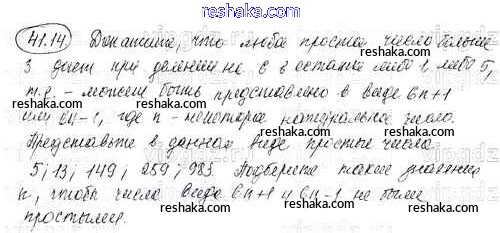 reshak.ru
41.14. Докажите, что любое простое число больше
reshak.ru
3 дает при делении на 6 в остатке либо 1, либо 5,
т.е. - может быть представлено в виде 6n+1
или 6n-1, где n - некоторое натуральное число.
reshaka.ru reshaka.ru
Представьте в данном виде простые числа
5; 13; 149; 259; 983 Подберите такие значения
reshaka.ru reshaka.ru reshaka.ru
n, чтобы числа вида 6n+1 и 6n-1 не были
простыми.
reshaka.ru reshaka.ru